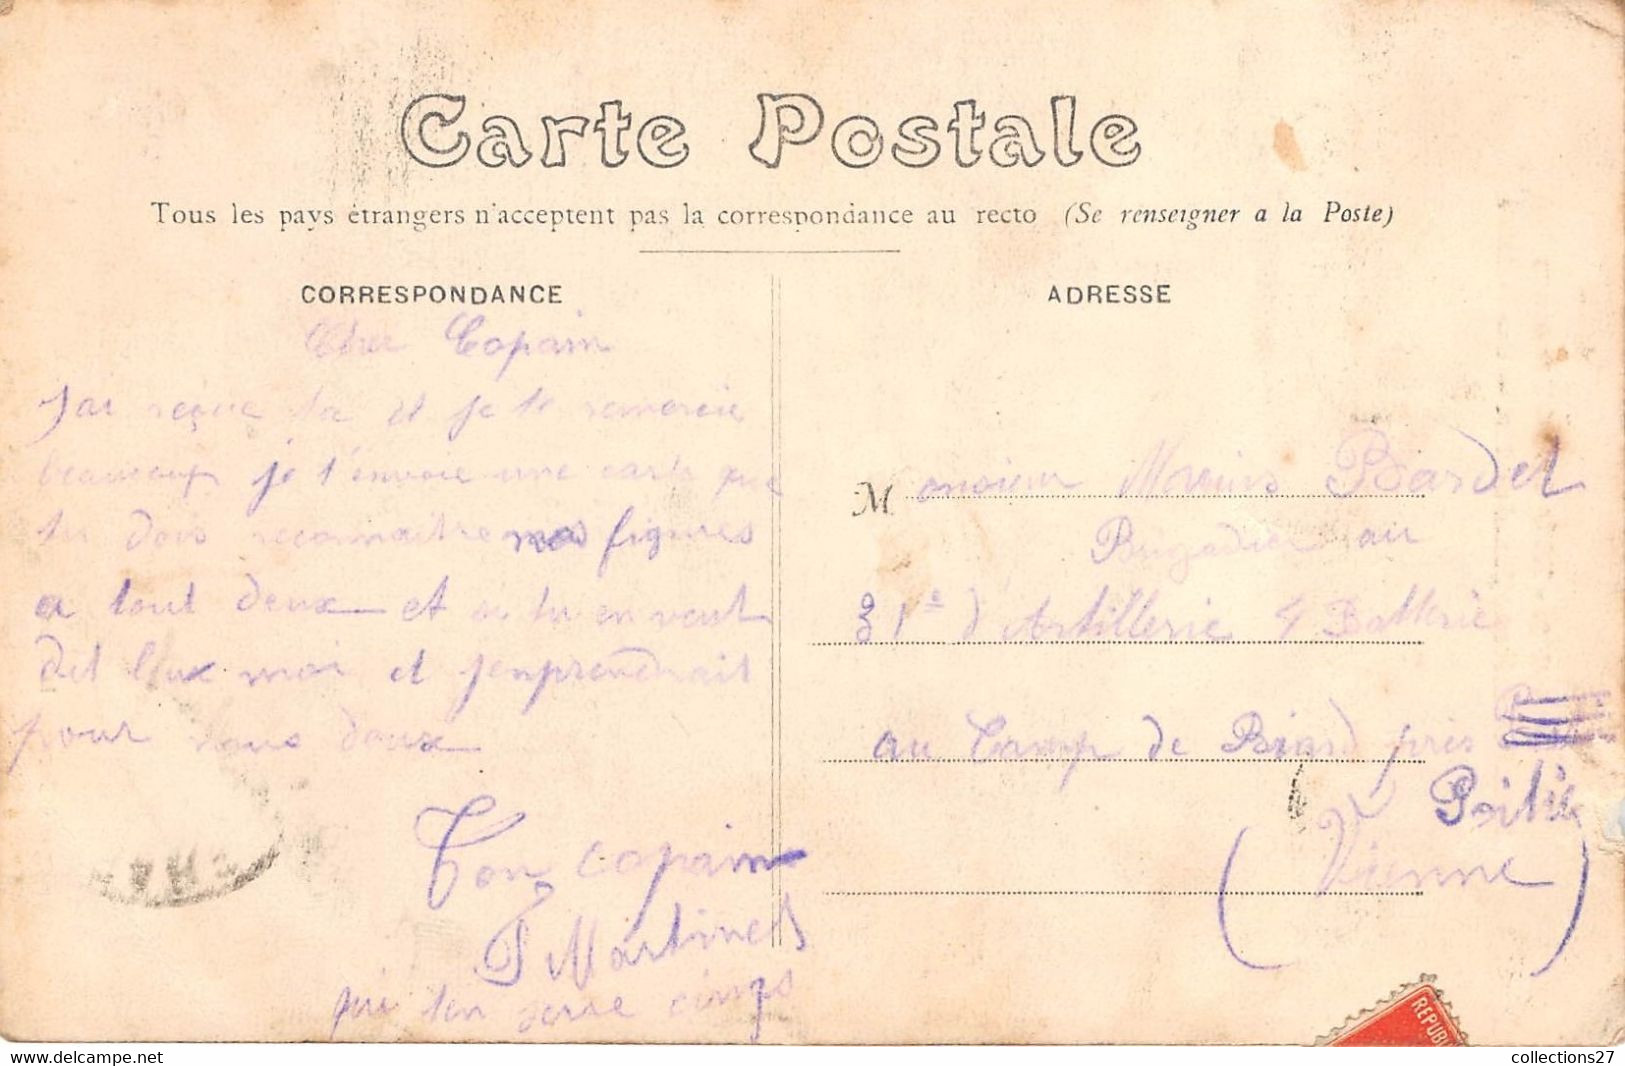 Carte Postale
Tous les pays étrangers n'acceptent pas la correspondance au recto (Se renseigner a la Poste)
CORRESPONDANCE
Cher Copain
J'ai reçue ta et je te remercie
beaucoup je t'envoie une carte que
tu dois reconnaitre nos figures
a tout deux et si tu en veut
dit moi et j'enprendrait
pour vous doux
Ton copain
P Martinet
qui ten serre cinqs
ADRESSE
Monsieur Marius Bardet
Brigadier au
31e d'Artillerie 4 Batterie
au Camp de Biard près
Poitie
(Vienne)
REPUBL
collections27